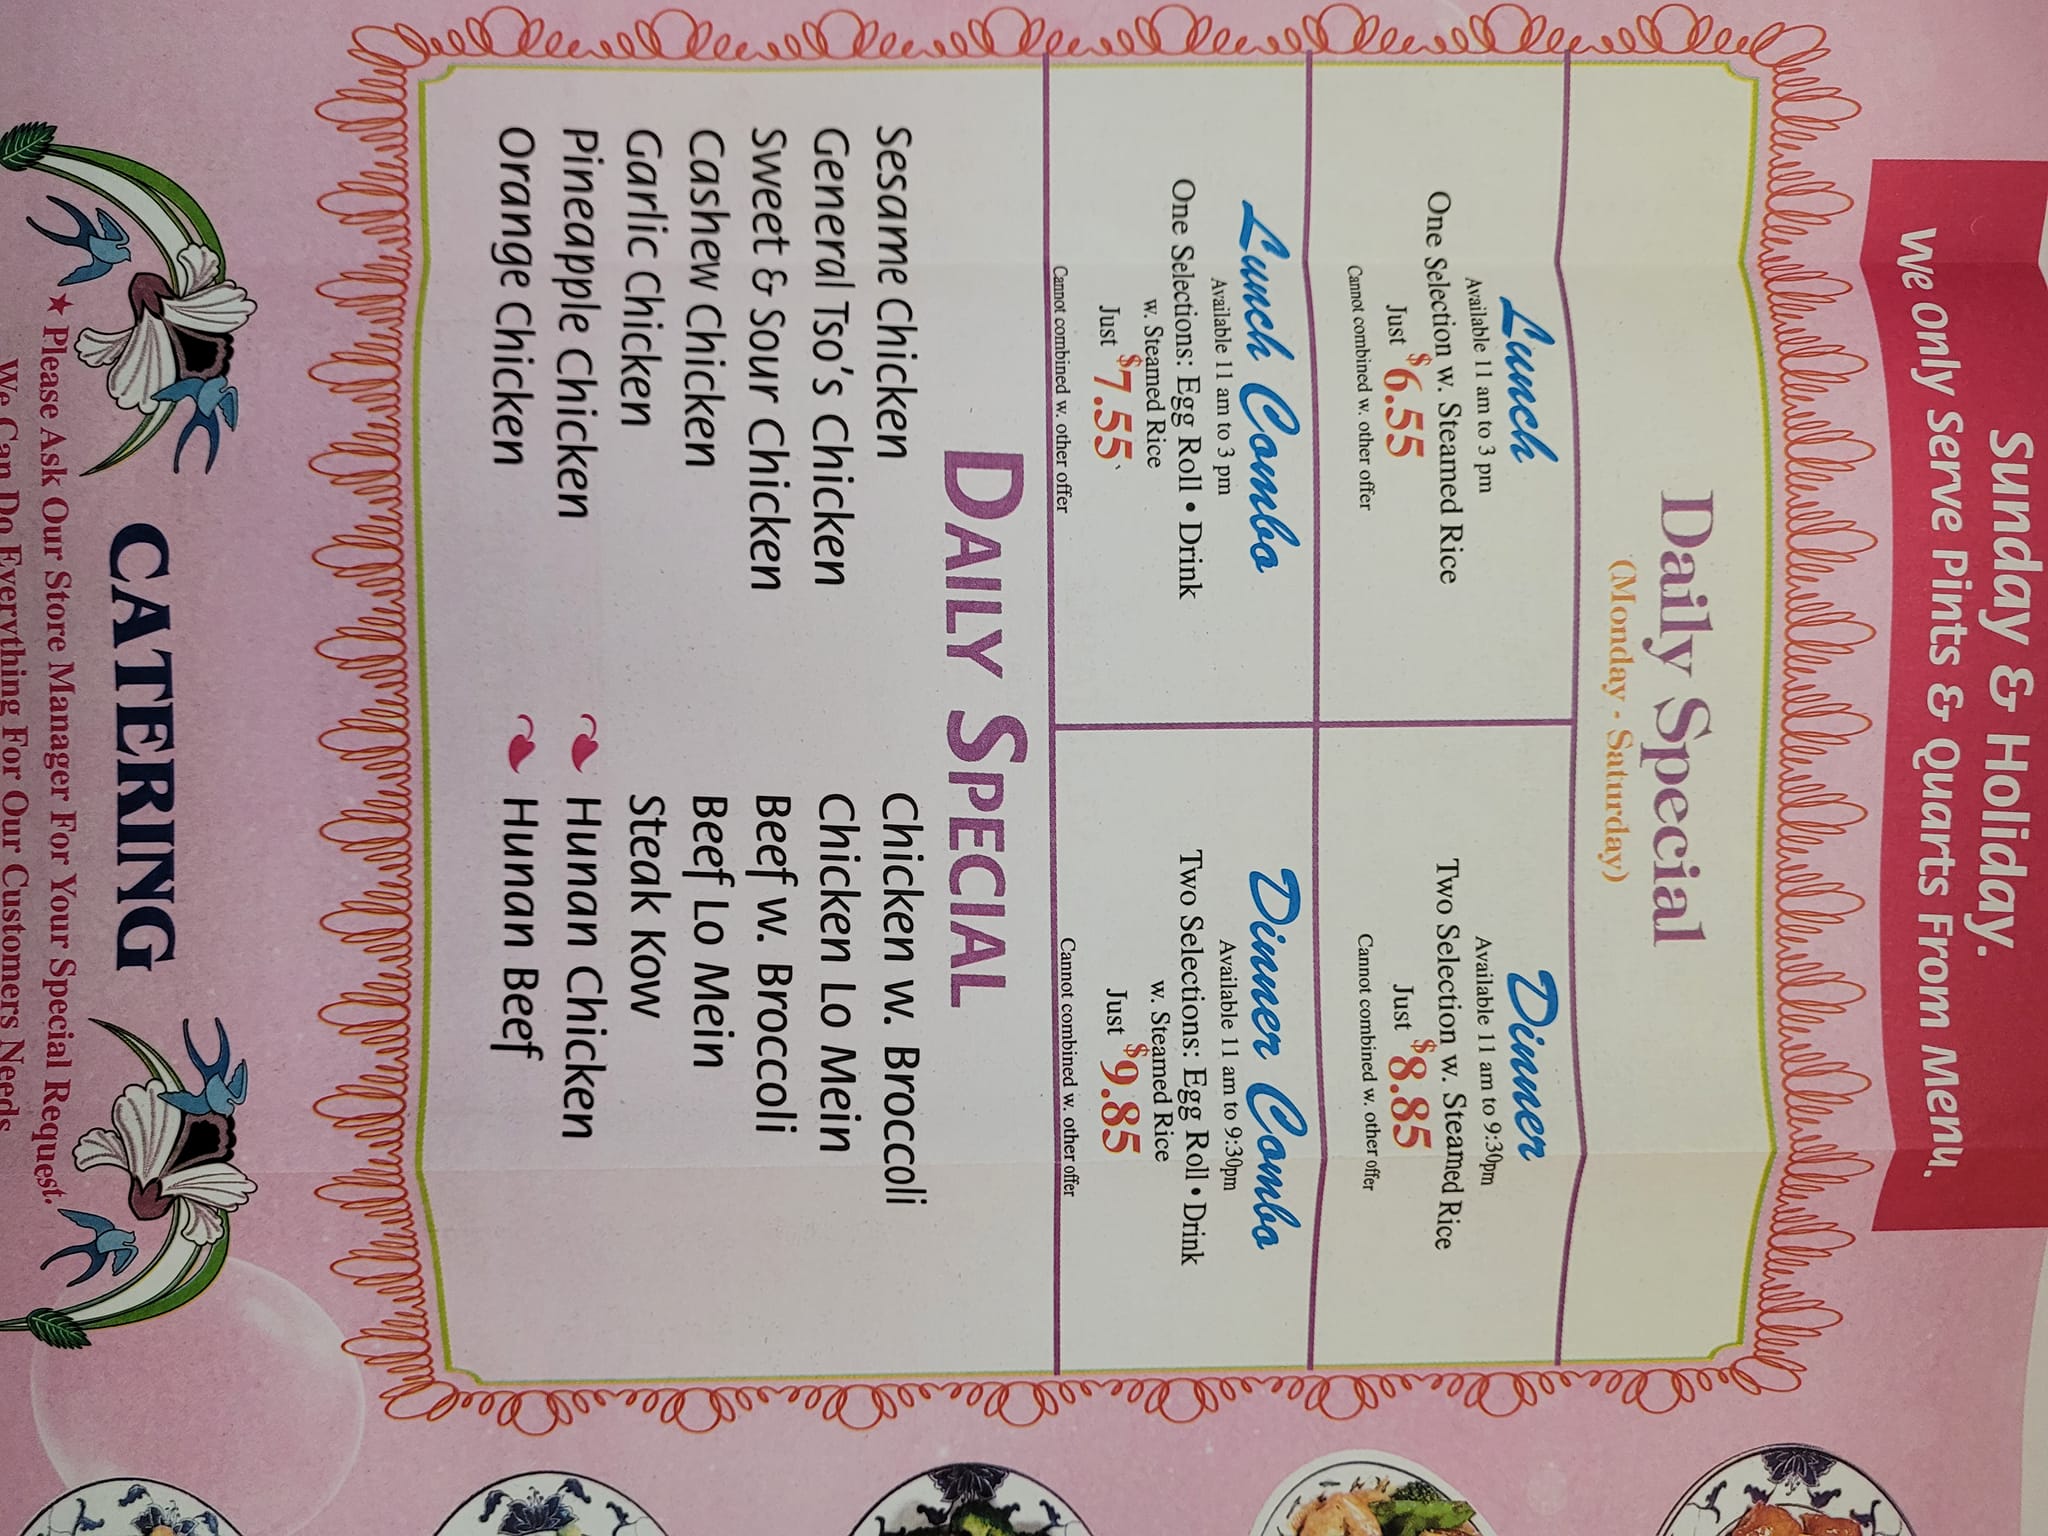 Sunday & Holiday.
We Only Serve Pints & Quarts From Menu.
Daily Special
(Monday - Saturday)
Lunch
Available 11 am to 3 pm
One Selection w. Steamed Rice
Just $6.55
Cannot combined w. other offer
Dinner
Available 11 am to 9:30pm
Two Selection w. Steamed Rice
Just $8.85
Cannot combined w. other offer
Lunch Combo
Available 11 am to 3 pm
One Selections: Egg Roll • Drink
w. Steamed Rice
Just $7.55
Cannot combined w. other offer
Dinner Combo
Available 11 am to 9:30pm
Two Selections: Egg Roll • Drink
w. Steamed Rice
Just $9.85
Cannot combined w. other offer
DAILY SPECIAL
Sesame Chicken
General Tso's Chicken
Sweet & Sour Chicken
Cashew Chicken
Garlic Chicken
Pineapple Chicken
Orange Chicken
Chicken w. Broccoli
Chicken Lo Mein
Beef w. Broccoli
Beef Lo Mein
Steak Kow
Hunan Chicken
Hunan Beef
CATERING
★ Please Ask Our Store Manager For Your Special Request.
We Can Do Everything For Our Customers Needs